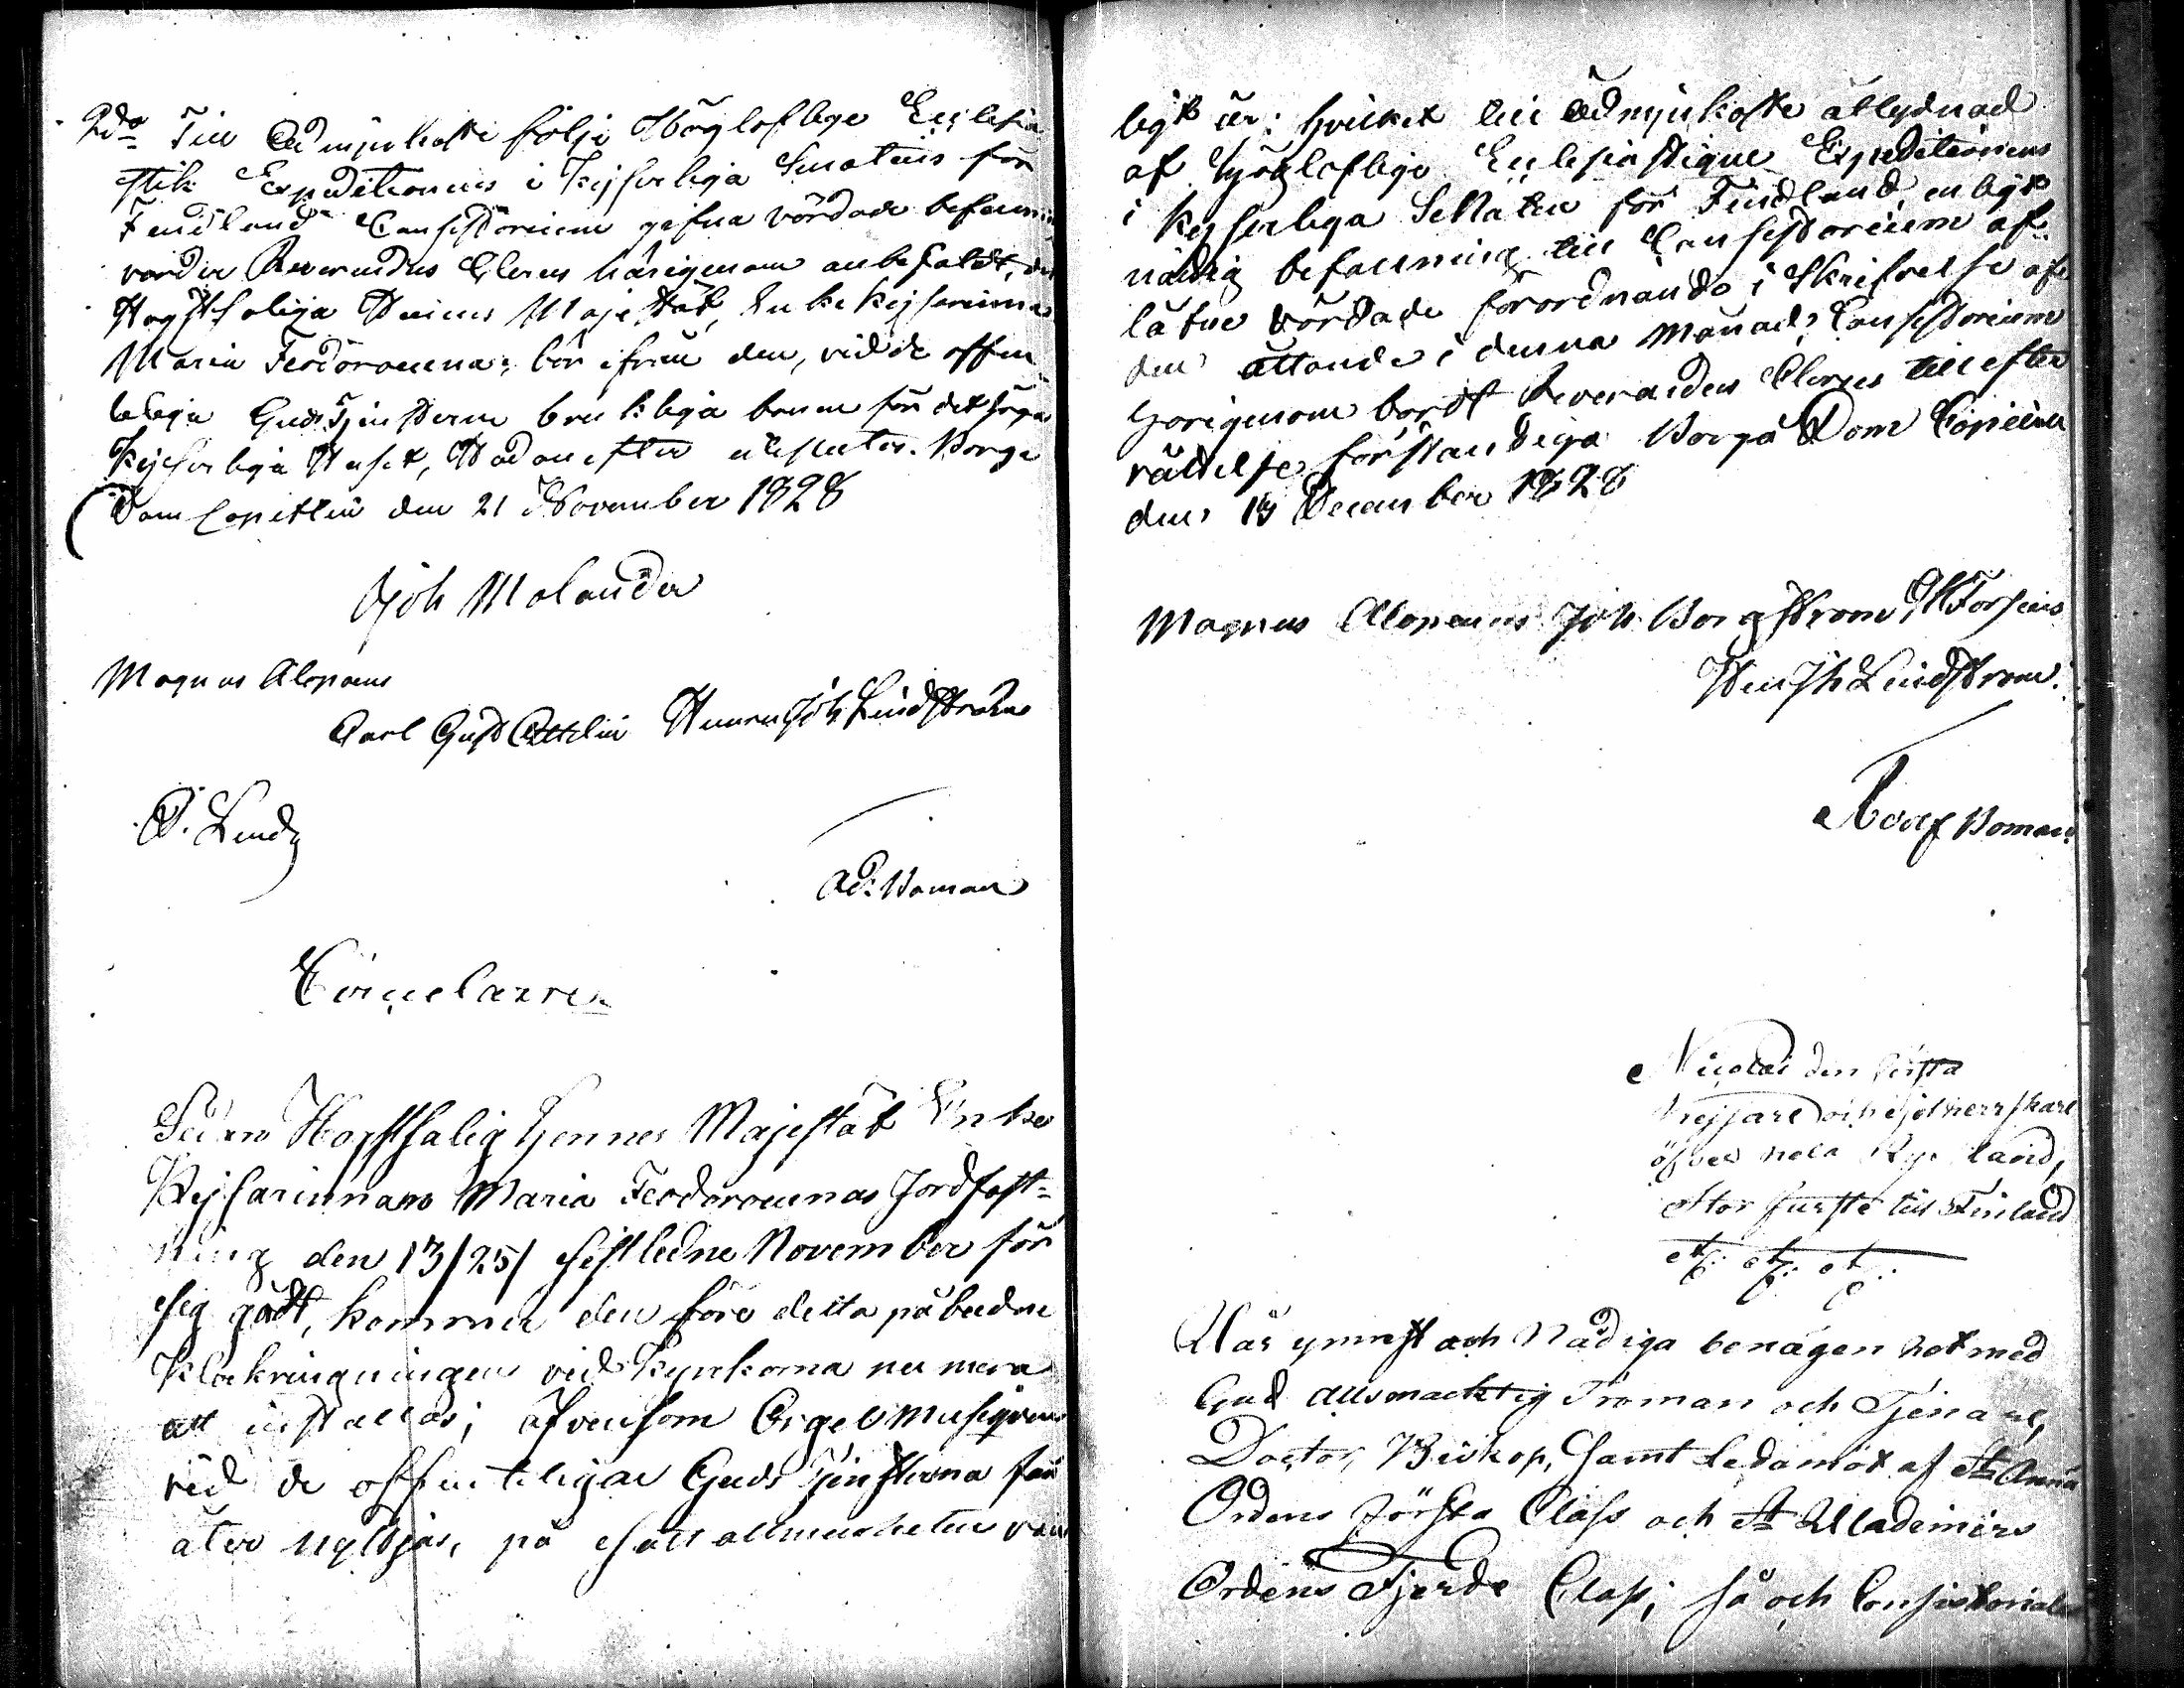 2do Till Ödmjukaste följe Högloflige Ecclesia
stik Expeditionens i Kejserliga Senaten för
Findland Consistorium gifna vördade befallning
varder Reverendus Clerus härigenom anbefaldt, att
Högstsaliga Hennes Majestät, Enke Kejsarinnan
Maria Feodorownas, bör ifrån den, vid de offent
leliga Gudstjensterne brukliga bönen för det höga
Kejserliga Huset, Hädanefter uteslutas. Borgå
Dom Capitlu den 21 November 1828
Joh Molander
Magnus Alopæus
Carl Gust Ottelin Henric Joh Lindström
P. Lindh
Ad. Boman
Circulairen
Sedan Högstsalig Hennes Majestät Enke
Kejsarinnans Maria Feodorownas Jordfäst=
ning den 13/25/ sistledne November för
sig gådt, kommer den före detta påbudne
Klockringningen vid Kyrkorna nu mera
att inställas; äfvensom Orgel Musiquen
vid de offenteligae Guds Tjensterna får
åter nyttjas, på sätt allmenheten van
ligt är: hvilket till ödmjukaste åtlydnad
af Högloflige Ecclesiastique Expeditionens
i Kejserliga Senaten för Findland, enligt
nådig befallning till Consistorium af
låtne vördade förordnande i Skrifvelse af
den åttonde i denna Månad, Consistorium
härigenom bordt Reverendus Clerus till efter
rättelse förständiga Borgå Dom Capitlu
den 13 December 1828
Magnus Alopæus Joh Borgström Forsius
Hen Joh Lindström
Adolf Boman
Nicolai den första
Kejsare och Sjelfherrskare
öfver hela Ryssland,
Stor furste till Finland
etc: etc: etc:
Vår ynnest och Nådiga benägenhet med
Gud Allsmacktig Troman och Tjenare,
Doctor, Biskop, Samt Ledamöt af St Anna
Ordens första Class och St Wlademirs
Ordens Fjerde Class; så och Consistoriales